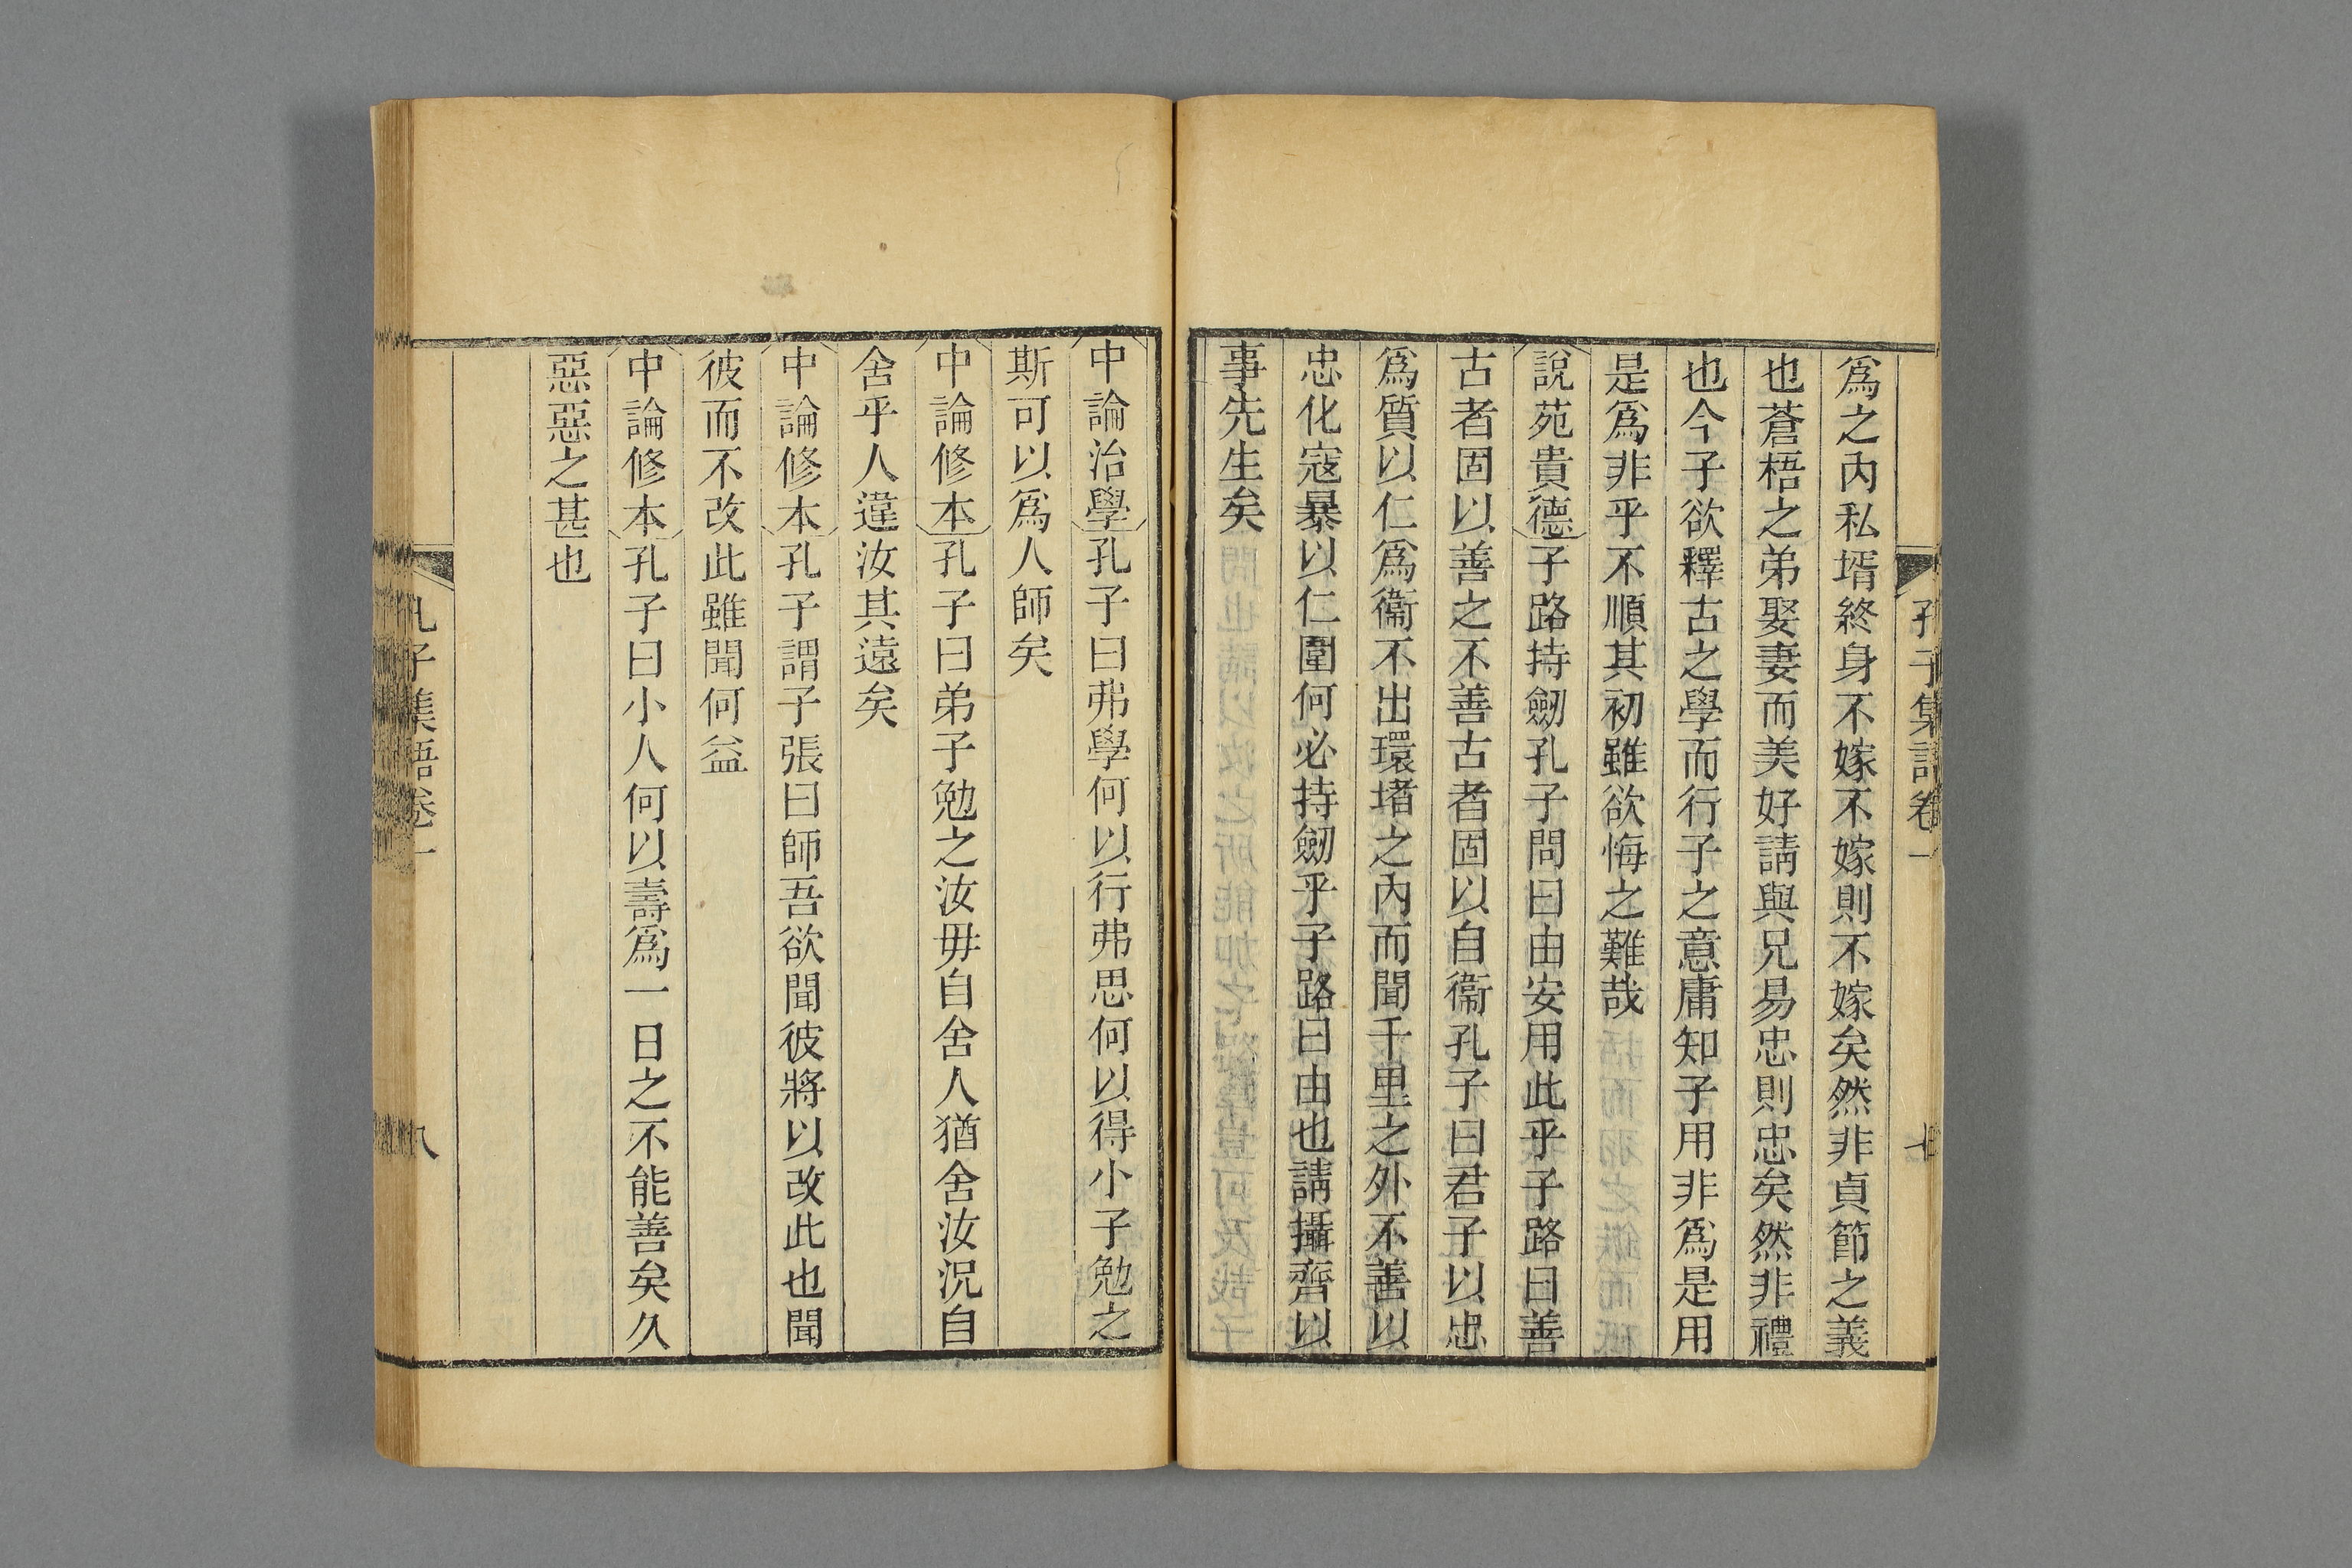 孔子集語卷一
七
爲之內私壻終身不嫁不嫁則不嫁矣然非貞節之義
也蒼梧之弟娶妻而美好請與兄易忠則忠矣然非禮
也今子欲釋古之學而行子之意庸知子用非爲是用
是爲非乎不順其初雖欲悔之難哉
說苑貴德子路持劒孔子問曰由安用此乎子路曰善
古者固以善之不善古者固以自衞孔子曰君子以忠
爲質以仁爲衞不出環堵之內而聞千里之外不善以
忠化寇暴以仁圍何必持劒乎子路曰由也請攝齊以
事先生矣
中論治學孔子曰弗學何以行弗思何以得小子勉之
斯可以爲人師矣
中論修本孔子曰弟子勉之汝毋自舍人猶舍汝況自
舍乎人違汝其遠矣
中論修本孔子謂子張曰師吾欲聞彼將以改此也聞
彼而不改此雖聞何益
中論修本孔子曰小人何以壽爲一日之不能善矣久
惡惡之甚也
孔子集語卷一
八